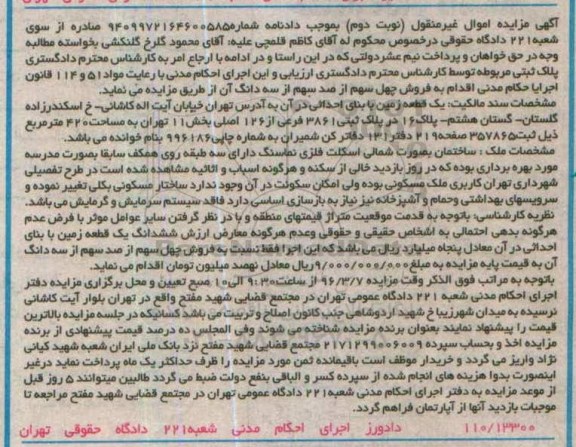 آگهی مزایده اموال غیرمنقول (نوبت دوم) بموجب دادنامه شماره۹۴۰۹۹۷۲۱۶۴۶۰۰۵۸۵ صادره از سوی
شعبه۲۲۱ دادگاه حقوقی درخصوص محکوم له آقای کاظم قلمچی علیه: آقای محمود گلرخ گلنکشی بخواسته مطالبه
وجه در حق خواهان و پرداخت نیم عشردولتی که در این راستا و در ادامه با ارجاع امر به کارشناس محترم دادگستری
پلاک ثبتی مربوطه توسط کارشناس محترم دادگستری ارزیابی و این اجرای احکام مدنی با رعایت مواد۵۱ و ۱۱۴ قانون
اجرایا حکام مدنی اقدام به فروش چهل سهم از صد سهم از سه دانگ آن از طریق مزایده می نماید.
مشخصات سند مالکیت: یک قطعه زمین با بنای احداثی در آن به آدرس تهران خیابان آیت اله کاشانی- خ اسکندرزاده
گلستان- گستان هشتم- پلاک۱۶ در پلاک ثبتی۳۸۶۱ فرعی از۱۲۶ اصلی بخش۱۱ تهران به مساحت۴۲۰ مترمربع
ذیل ثبت۳۵۷۸۶۵ صفحه۲۱۹ دفتر۱۳۱ دفاتر کن شمیران به شماره چاپی۹۹۶۱۸۶ بنام خوانده می باشد.
مشخصات ملک : ساختمان بصورت شمالی اسکلت فلزی نماسنگ دارای سه طبقه روی همکف سابقا بصورت مدرسه
مورد بهره برداری بوده که در روز بازدید خالی از سکنه و هرگونه اسباب و اثاثیه مشاهده شده است در طرح تفصیلی
شهرداری تهران کاربری ملک مسکونی بوده ولی امکان سکونت در آن وجود ندارد ساختار مسکونی بکلی تغییر نموده و
سرویسهای بهداشتی وحمام و آشپزخانه نیز نیاز به بازسازی اساسی دارد فاقد سیستم سرمایش و گرمایش می باشد.
نظریه کارشناسی: باتوجه به قدمت موقعیت متراژ قیمتهای منطقه و با در نظر گرفتن سایر عوامل موثر با فرض عدم
هرگونه بدهی احتمالی به اشخاص حقیقی و حقوقی وعدم هرگونه معارض ارزش ششدانگ یک قطعه زمین با بنای
احداثی در آن معادل پنجاه میلیارد ریال می باشد که این اجرا فقط نسبت به فروش چهل سهم از صد سهم از سه دانگ
آن به قیمت پایه مزایده به مبلغ۹/۰۰۰/۰۰۰/۰۰۰ریال معادل نهصد میلیون تومان اقدام می نماید.
باتوجه به مراتب فوق الذکر وقت مزایده ۹۶/۳/۷ از ساعت۹:۳۰ الی۱۰ صبح تعیین و محل برگزاری مزایده دفتر
اجرای احکام مدنی شعبه ۲۲۱ دادگاه عمومی تهران در مجتمع قضایی شهید مفتح واقع در تهران بلوار آیت کاشانی
نرسیده به میدان شهرزیبا خ شهید اردوشاهی جنب کانون اصلاح و تربیت می باشد کسانیکه در جلسه مزایده بالاترین
قیمت را پیشنهاد نمایند بعنوان برنده مزایده شناخته می شوند وفی المجلس ده درصد قیمت پیشنهادی از برنده
مزایده اخذ و بحساب سپرده ۲۱۷۱۲۹۹۰۰۶۰۰۹ مجتمع قضایی شهید مفتح نزد بانک ملی ایران شعبه شهید کیانی
نژاد واریز می گردد و خریدار موظف است باقیمانده ثمن مورد مزایده را ظرف حداکثر یک ماه پرداخت نماید درغیر
اینصورت بدوا هزینه های انجام شده از سپرده کسر و الباقی بنفع دولت ضبط می گردد طالبین میتوانند ۵ روز قبل
از موعد مزایده به دفتر اجرای احکام مدنی شعبه۲۲۱ دادگاه عمومی تهران در مجتمع قضایی شهید مفتح مراجعه تا
موجبات بازدید آنها از آپارتمان فراهم گردد.
۱۱۰/۱۳۳۰۰ دادورز اجرای احکام مدنی شعبه۲۲۱ دادگاه حقوقی تهران